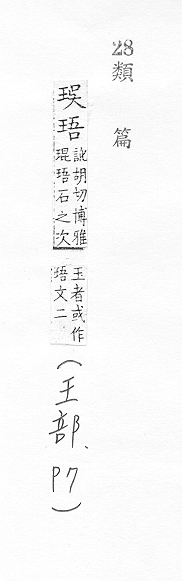 28類篇
珸琘訛胡切博雅琨珸石之次玉者或作珸文二
(王部、P7)